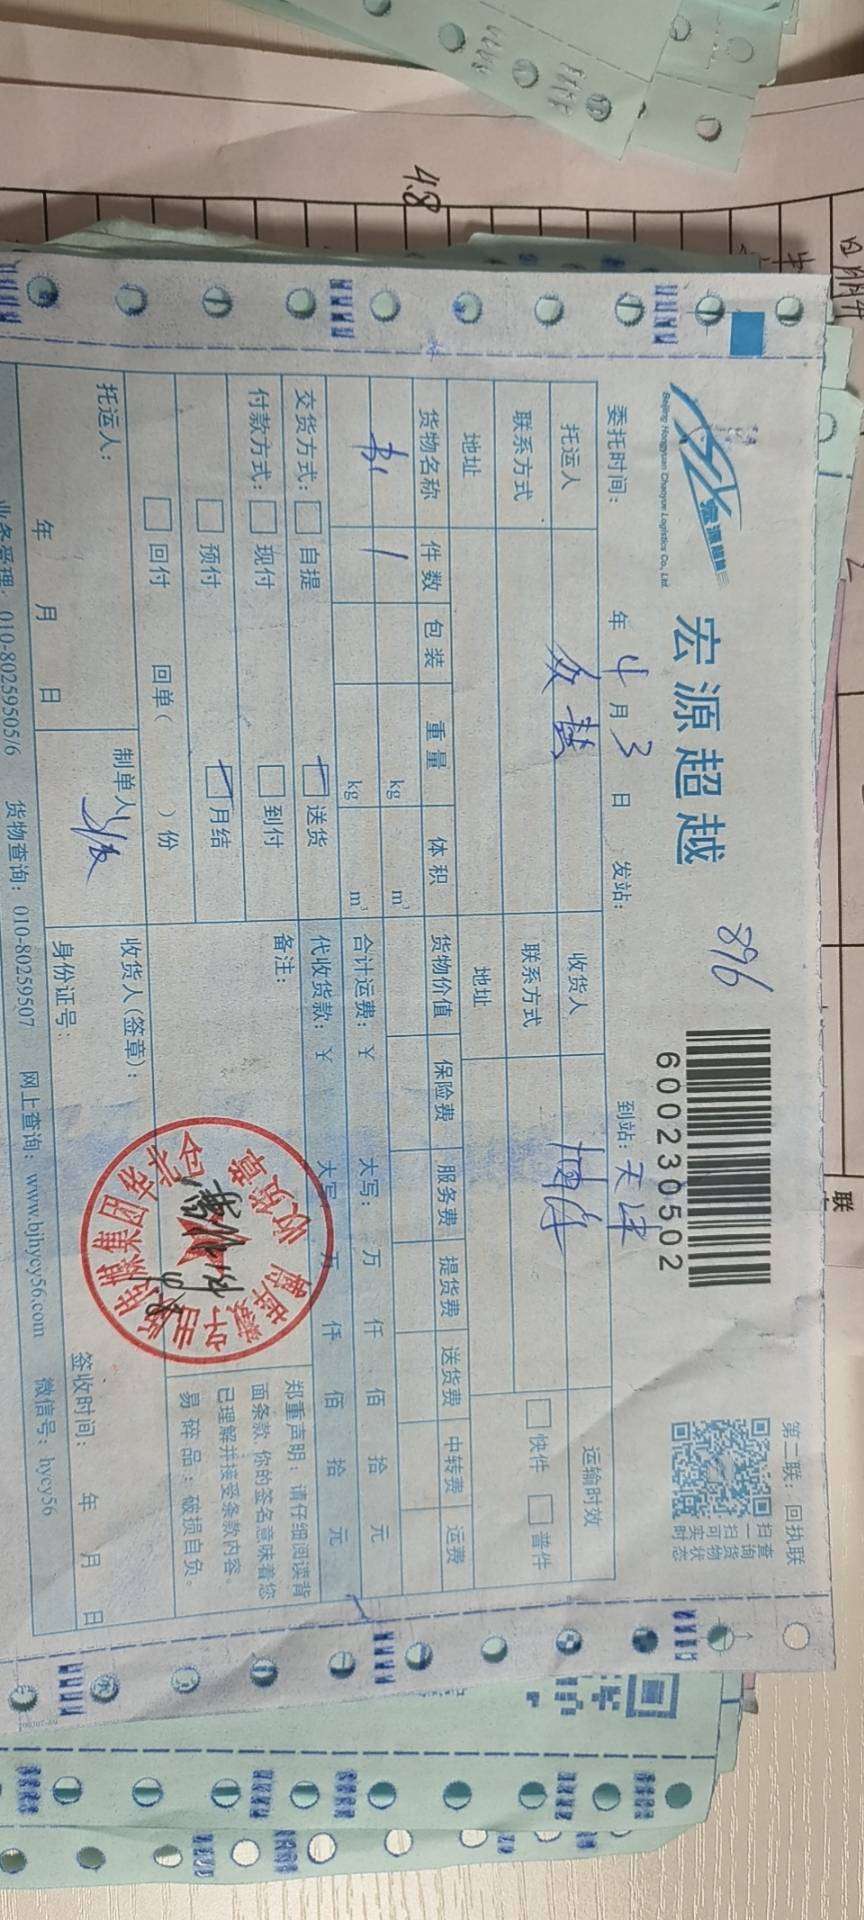 48
宏源超越
Beijing Hongyuan Chaoyue Logistics Co., Ltd.
宏源超越
896
600230502
第二联：回执联
扫一扫
查询货物
可实时状态
委托时间： 年 4 月 3 日 发站： 到站：天津
托运人 收货人 运输时效
联系方式 联系方式 快件 普件
地址 地址
货物名称 件数 包装 重量 体积 货物价值 保险费 服务费 提货费 送货费 中转费 运费
1 kg m³
kg m³ 合计运费：￥ 大写： 万 仟 佰 拾 元
交货方式： 自提 送货 代收货款：￥ 大写 万 仟 佰 拾 元
付款方式： 现付 到付 备注：
预付 月结
回付 回单（ ）份
郑重声明：请仔细阅读背
面条款，你的签名意味着您
已理解并接受条款内容。
易碎品：破损自负。
收货章
托运人： 制单人 收货人(签章)：
年 月 日 身份证号： 签收时间： 年 月 日
业务受理：010-80259505/6 货物查询：010-80259507 网上查询：www.bjhycy56.com 微信号：hycy56